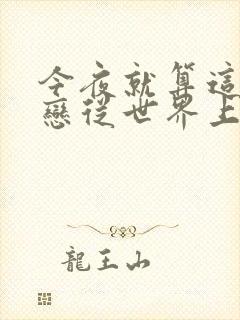 今夜就算這
戀從世界上
龍王山